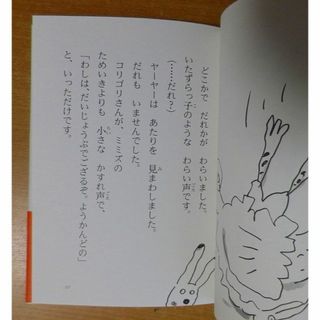 どこかで　だれかが　わらいました。
いたずらっ子のような　わらい声です。
（……だれ？）
ヤーヤーは　あたりを　見まわしました。
だれも　いませんでした。
コリゴリさんが、ミミズの
ためいきよりも　小さな　かすれ声で、
「わしは、だいじょうぶでござるぞ。ようかんどの」
と、いっただけです。